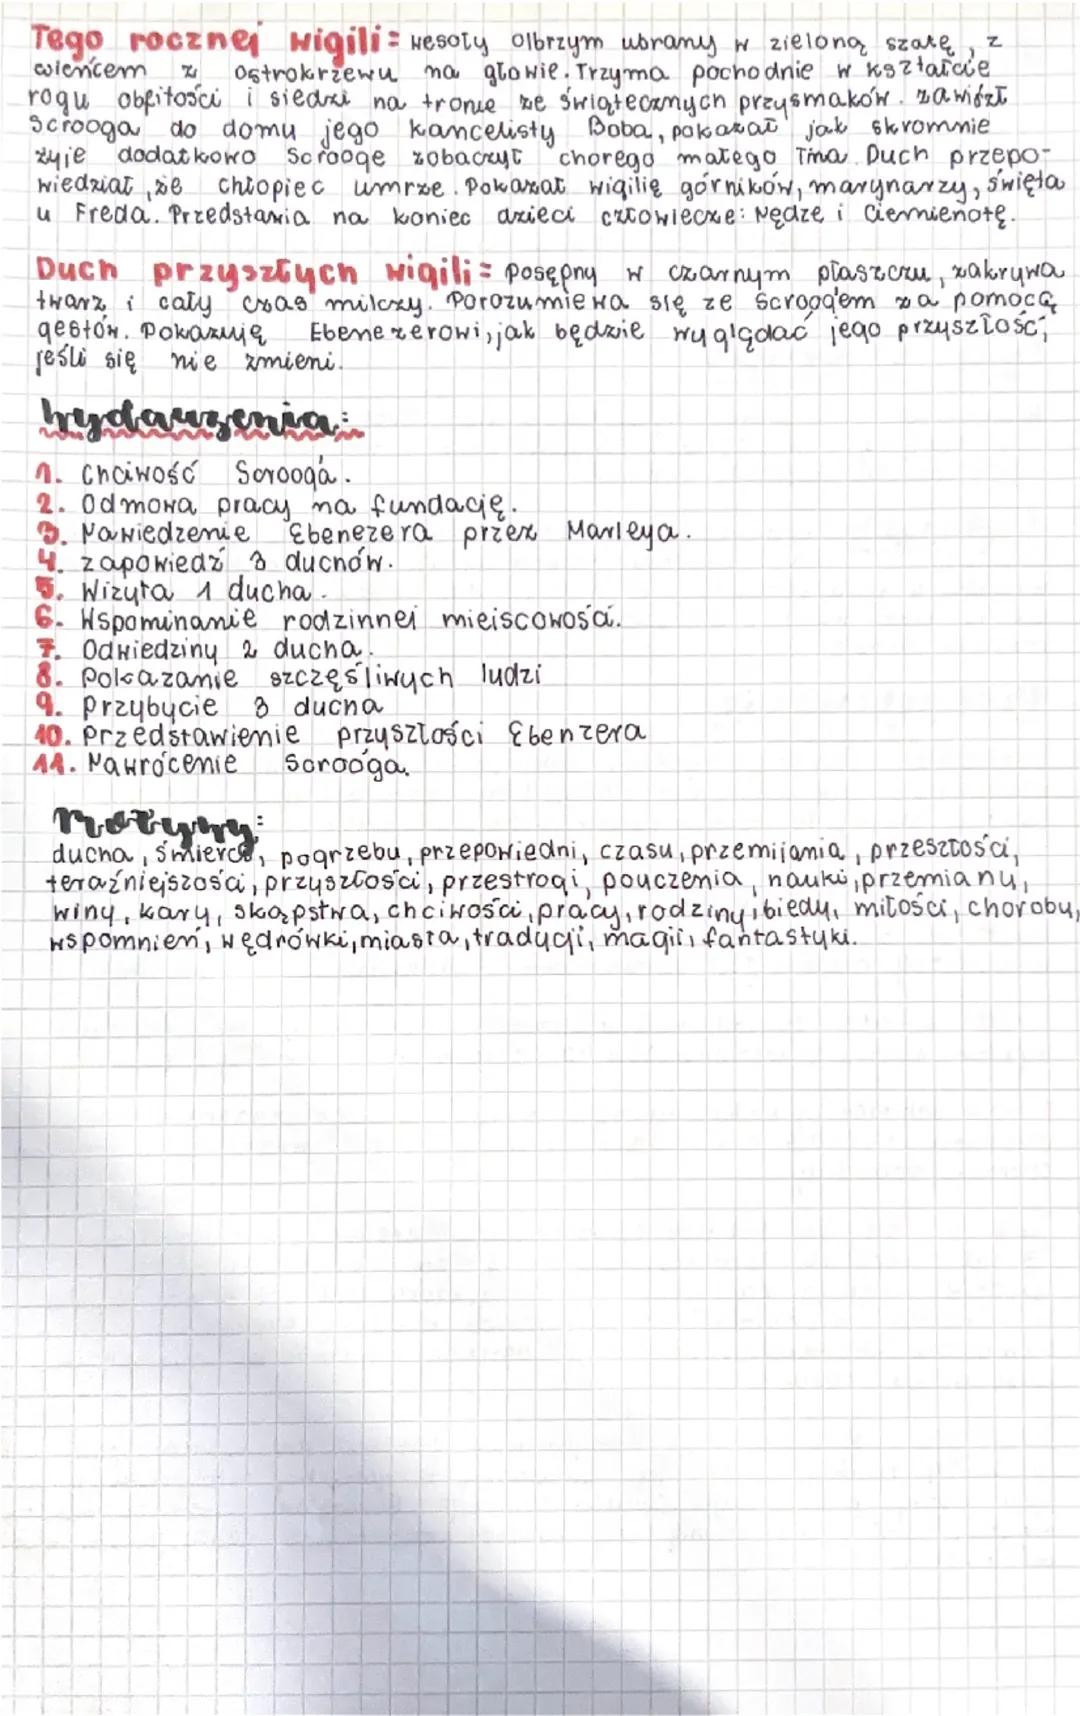 Tego rocznej wigili = wesoły olbrzym ubrany w zieloną szatę, z
wieńcem z ostrokrzewu na głowie. Trzyma pochodnie w kształcie
rogu obfitości i siedzi na tronie ze świątecznych przysmaków. zawiózł
Scrooga do domu jego kancelisty Boba, pokazał jak skromnie
żyje dodatkowo Scrooge zobaczył chorego małego Tima. Duch przepo-
wiedział, że chłopiec umrze. Pokazał wigilię górników, marynarzy, święta
u Freda. Przedstawia na koniec dzieci człowiecze: Nędzę i Ciemnienotę.
Duch przyszłych wigili = posępny w czarnym płaszczu, zakrywa
twarz i cały czas milczy. Porozumiewa się ze scroog'em za pomocą
gestów. Pokazuję Ebenezerowi, jak będzie wyglądać jego przyszłość,
jeśli się nie zmieni.
Wydarzenia:
1. Chciwość Scrooga.
2. Odmowa pracy na fundację.
3. Nawiedzenie Ebenezera przez Marleya.
4. zapowiedź 3 duchów.
5. Wizyta 1 ducha.
6. Wspominanie rodzinnej miejscowości.
7. Odwiedziny 2 ducha.
8. Pokazanie szczęśliwych ludzi
9. Przybycie 3 ducha
10. Przedstawienie przyszłości Ebenzera
11. Nawrócenie Scrooga.
Motywy:
ducha, śmierci, pogrzebu, przepowiedni, czasu, przemijania, przeszłości,
teraźniejszości, przyszłości, przestrogi, pouczenia, nauki, przemiany,
winy, kary, skąpstwa, chciwości, pracy, rodziny, biedy, miłości, choroby,
wspomnień, wędrówki, miasta, tradycji, magii, fantastyki.